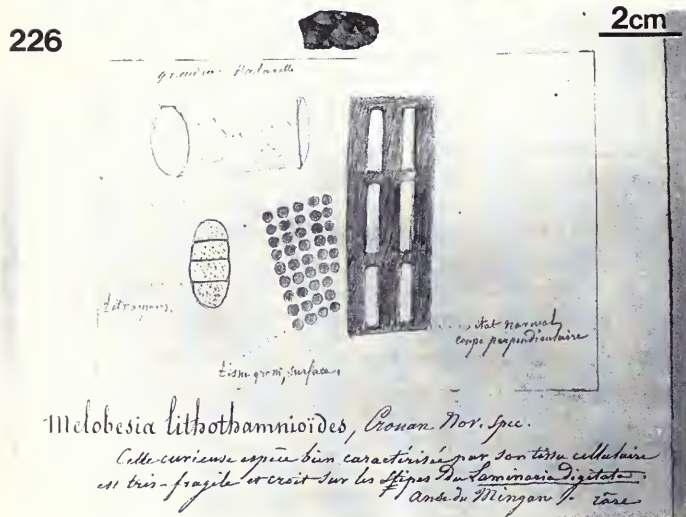 226
2cm
grandeur naturelle
tétraspore,
tissu grossi, surface,
état normal,
coupe perpendiculaire
Melobesia lithothamnioïdes, Crouan Nov. Spec.
Cette curieuse espèce bien caractérisée par son tissu cellulaire
est très-fragile et croit sur les stipes du Laminaria digitata.
Anse du Mingan rare